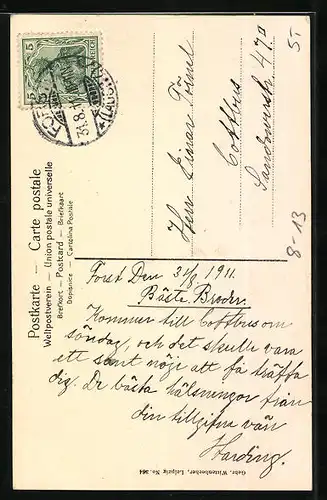 Postkarte — Carte postale
Weltpostverein — Union postale universelle
Brefkort — Postcard — Briefkaart
Dopisnice — Cartolina Postale
5 5
FORST
31.8.11
(LAUSITZ)
Herr Einar
Cottbus
Sandowerstr 47 II
5-
8-13
Forst Den 31/8 1911.
Bäste Broder.
Kommer till Cottbus om
söndag, och det skulle vara
ett sant nöje att få träffa
dig. De bästa hälsningar från
din tillgifne vän
Harding.
Gebr. Wittenbecher, Leipzig No. 364